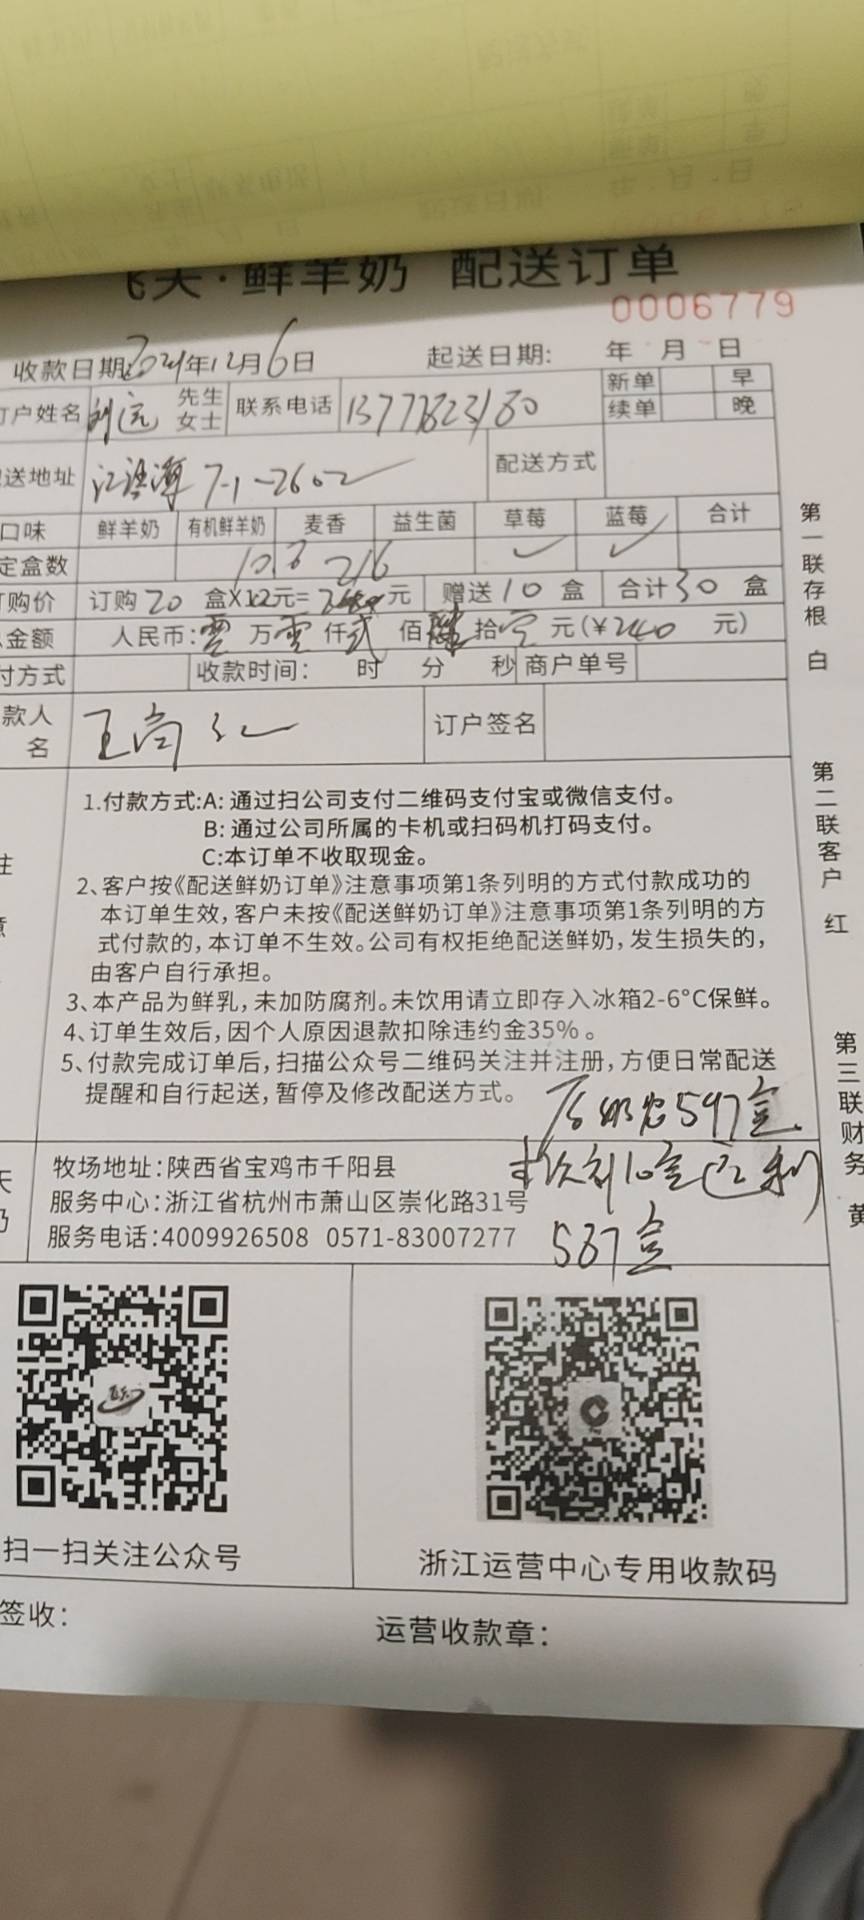 天·鲜羊奶 配送订单
0006779
收款日期:2024年12月6日 起送日期: 年 月 日
订户姓名 刘远 先生 女士 联系电话 新单 早
续单 晚
送地址 7-1-2602 配送方式
口味 鲜羊奶 有机鲜羊奶 麦香 益生菌 草莓 蓝莓 合计
定盒数 216 ✓ ✓
订购价 订购20盒X12元= 元 赠送10盒 合计30盒
金额 人民币:零万零仟贰佰肆拾空元(¥240元)
付方式 收款时间: 时 分 秒 商户单号
款人
名 订户签名
1.付款方式:A:通过扫公司支付二维码支付宝或微信支付。
B:通过公司所属的卡机或扫码机打码支付。
C:本订单不收取现金。
2、客户按《配送鲜奶订单》注意事项第1条列明的方式付款成功的
本订单生效,客户未按《配送鲜奶订单》注意事项第1条列明的方
式付款的,本订单不生效。公司有权拒绝配送鲜奶,发生损失的,
由客户自行承担。
3、本产品为鲜乳,未加防腐剂。未饮用请立即存入冰箱2-6°C保鲜。
4、订单生效后,因个人原因退款扣除违约金35%。
5、付款完成订单后,扫描公众号二维码关注并注册,方便日常配送
提醒和自行起送,暂停及修改配送方式。
597盒
10盒
587盒
牧场地址:陕西省宝鸡市千阳县
服务中心:浙江省杭州市萧山区崇化路31号
服务电话:4009926508 0571-83007277
扫一扫关注公众号
浙江运营中心专用收款码
签收:
运营收款章:
第一联存根 白
第二联客户 红
第三联财务 黄